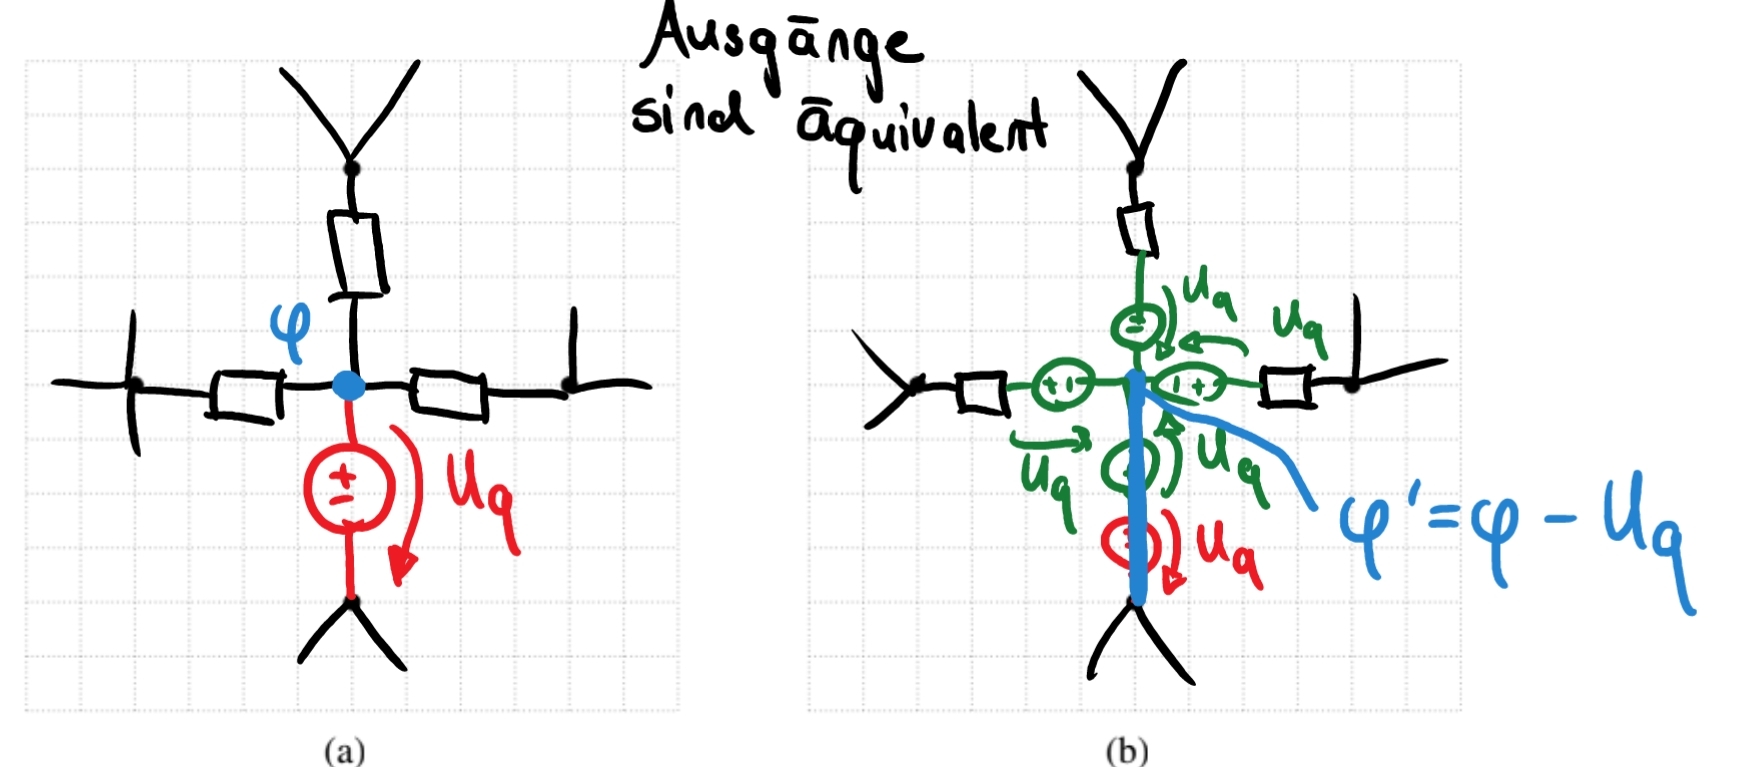 Ausgänge
sind äquivalent
φ
+
−
Uq
Uq
Uq
+ −
− +
Uq
Uq
Uq
φ' = φ − Uq
(a)
(b)